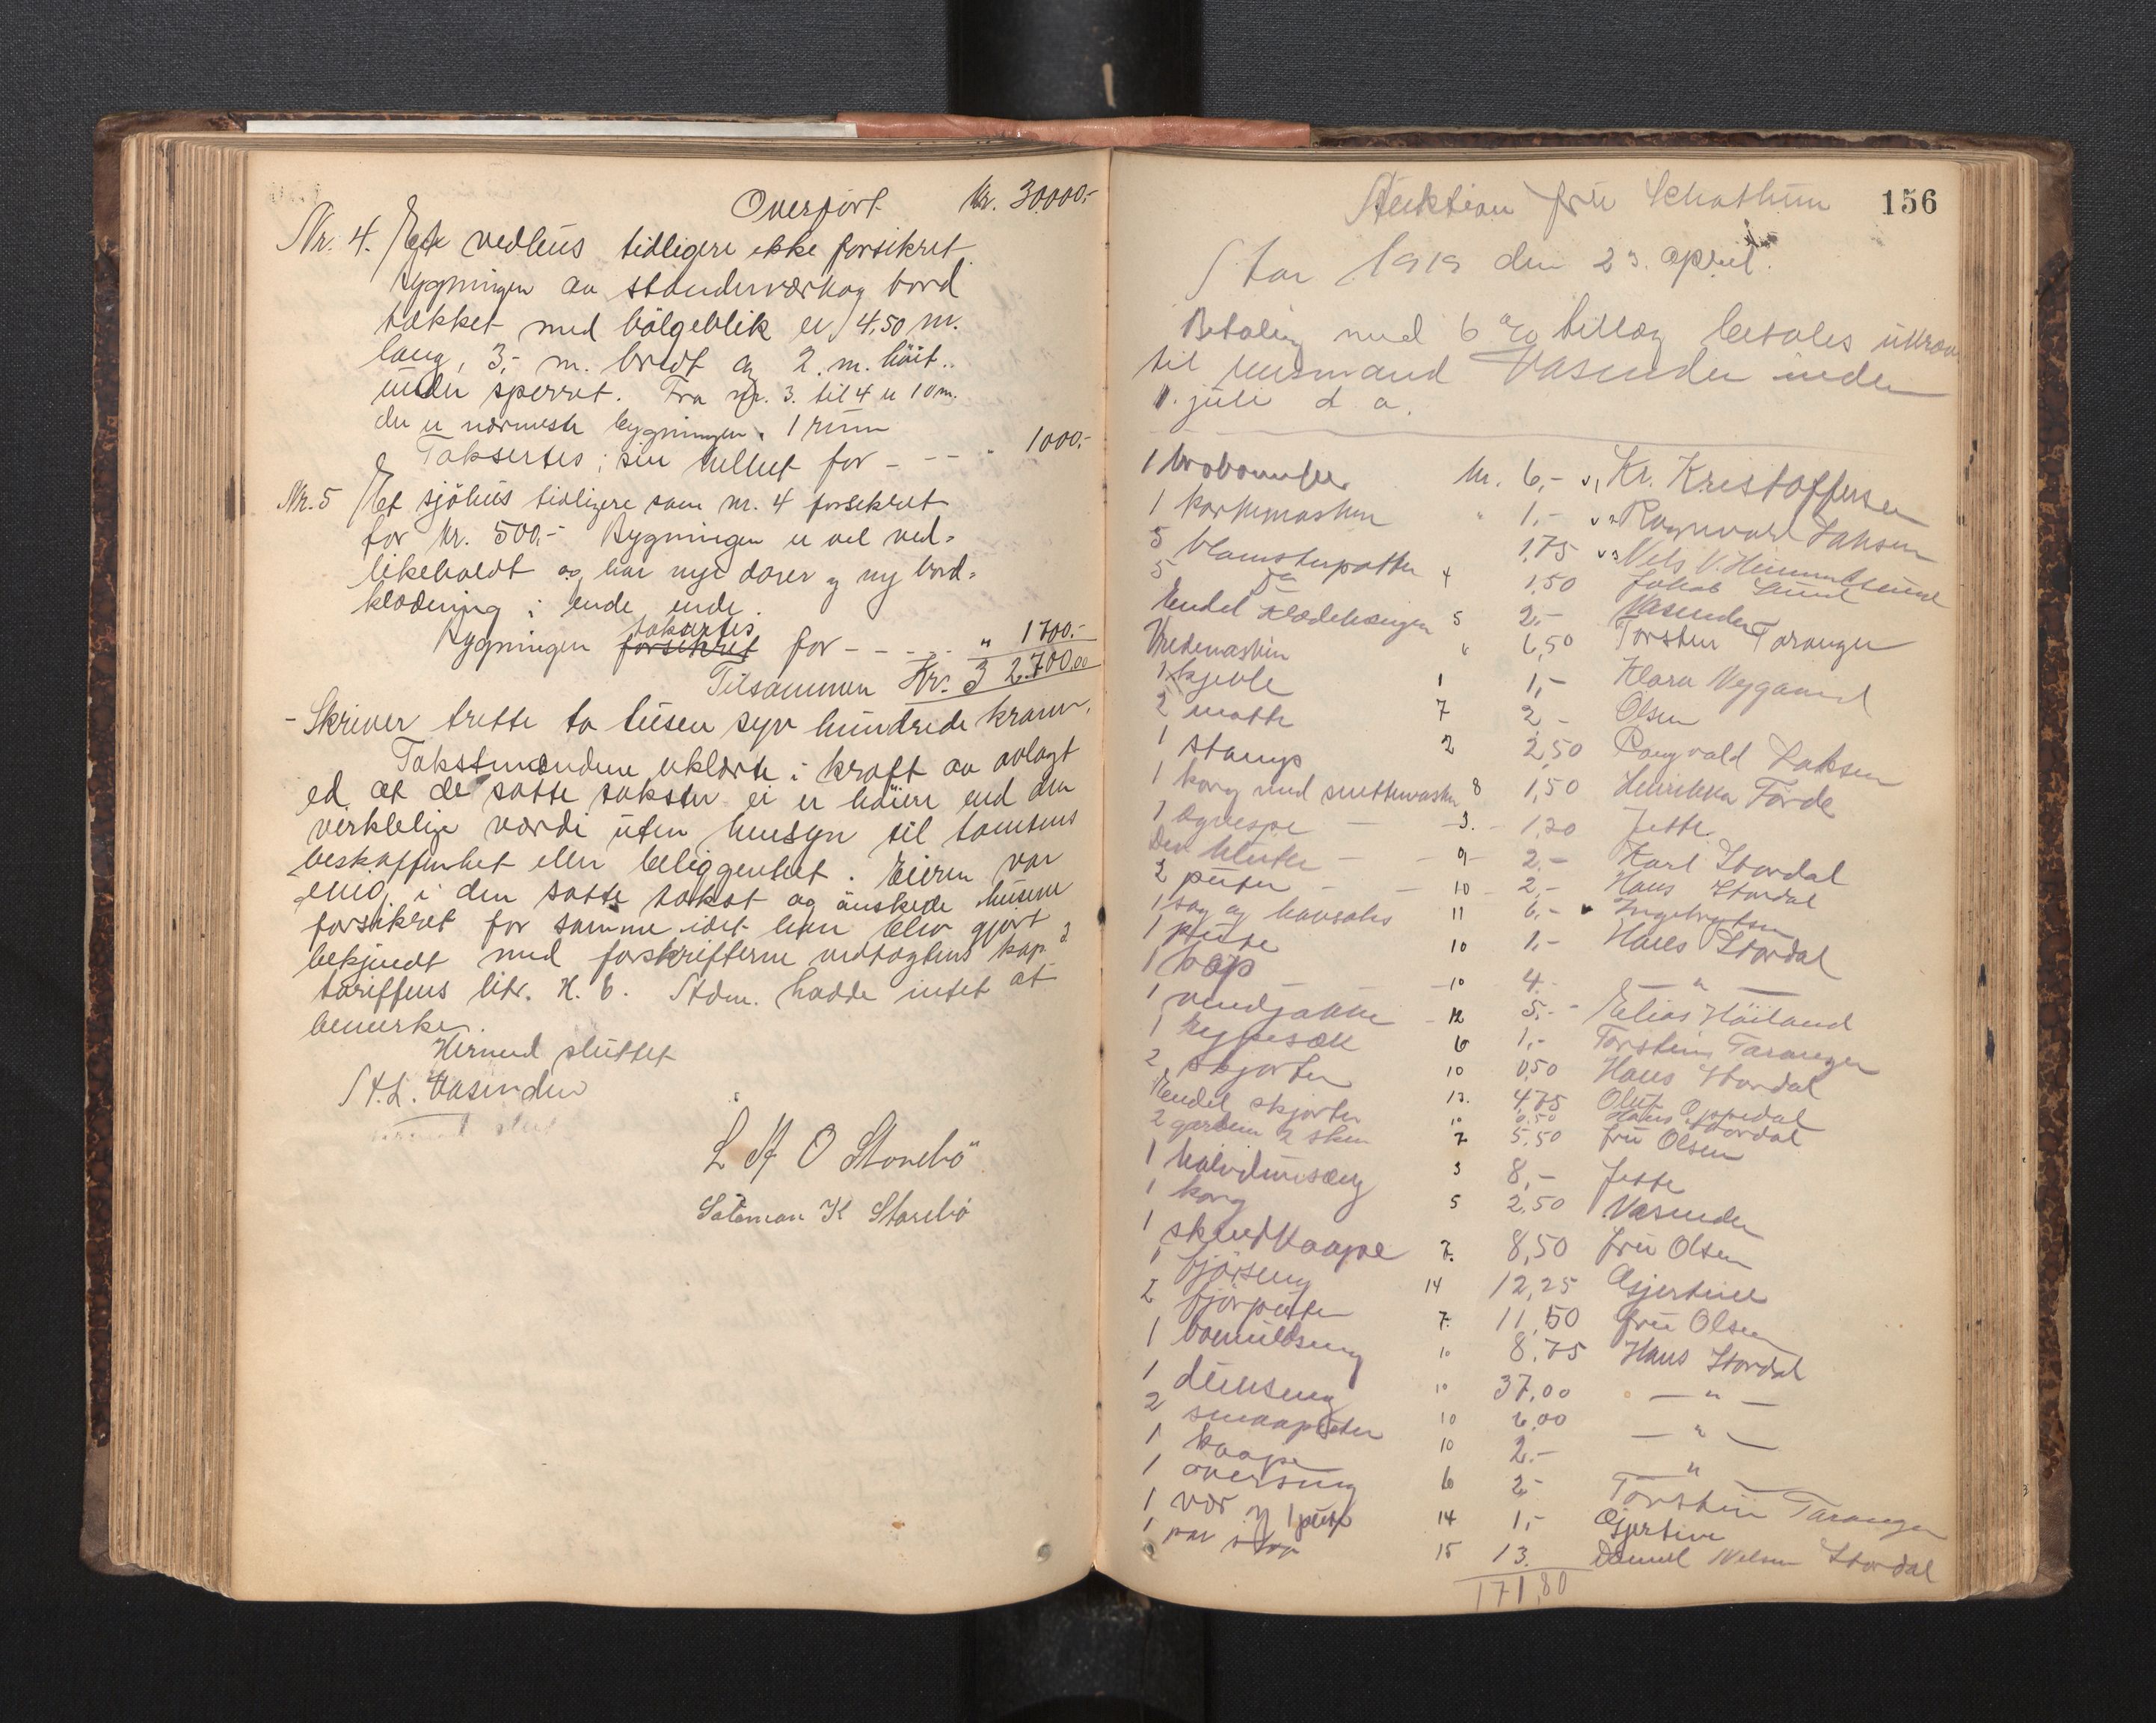 Overført Kr. 30000.-
Nr. 4. Et vedhus tidligere ikke forsikret.
Bygningen av standerverk og bord
tækket med bölgeblik er 4,50 m.
lang, 3,- m. bredt og 2. m. höit.
under sperret. Fra nr. 3. til 4 er 10 m.
der er nærmeste bygningen. 1 rum
Taksertes i sin helhet for - - - " 1000.-
Nr. 5 Et sjöhus tidligere som nr. 4 forsekret
for kr. 500,- Bygningen er vel ved-
likeholdt og har nye dører og ny bord-
klædning i ende ende.
taksertes
Bygningen forsikret for - - - - " 1700.-
Tilsammen Kr. 32.700.00
- Skriver trette to tusen syv hundrede kroner.
Takstmændene erklærte i kraft av avlagt
ed, at de satte takster ei er höiere end den
verklelige værdi uten hensyn til tomtens
beskaffenhet eller beliggenhet. Eieren var
enig i den satte takst og önskede husene
forsikret for samme idet han blev gjort
bekjendt med forskrifterne vedtægtens kap. 2
tariffens litr. H. 6. Stdm. hadde intet at
bemerke.
Hermed sluttet
St. L. Vasenden
L A O Storebö
Salamon K Storebö
156
Auktion fru Schathun
Aar 1919 den 23. april.
Betaling med 6 % tillæg betales ukrav
til lensmand Vasenden inden
1. juli d a.
1 Kr. 6,- v1 Kr. Kristoffersen
1 " 1,- v2 Ragnvald Jaksen
5 blomsterpotter 1,75 v3 Nels V.
5 do 4 1,50 Jakob
Endel 5 2,- Vasenden
Vredemaskin 6 6,50 Torsten Taranger
1 kjevle 1 1,- Klara
2 matte 7 2,- Olsen
1 stamp 2 2,50 Rangvald Jaksen
1 korg med 8 1,50 Henrikka Förde
1 - 3. - 1,20 Jette
- - 9 - 2,- Karl Stordal
2 puter - - 10 - 2,- Hans Stordal
1 sag og 11 6,- Ingebrgtsen
1 pute 10 1,- Hans Stordal
1 - 10 4.- - " -
1 vindjakke - 12 5.- - Elias Höiland
1 6 1,- Torstein Taranger
2 skjorter 10 0,50 Hans Stordal
Endel skjorter 13. 4,75 Oluf Oppedal
2 gardin 10 0,50 Hans Stordal
7 5,50 fru Olsen
1 3 8,- Jette
1 korg 5 2,50 Vasenden
1 skindkaape 7. 8,50 fru Olsen
1 fjörseng 14 12,25 Gjertine
2 fjörputer 7. 11,50 fru Olsen
1 bomuldseng 10 8.75 Hans Stordal
1 dunseng 10 37,00 - " -
2 smaaputer 10 6,00 - " -
1 kaape 10 2.- - " -
1 overseng 6 2,- Torstein Taranger
1 var og 1 pute 14 1,- Gjertine
1 par 15 13. Daniel Nelsen Stordal
171,80